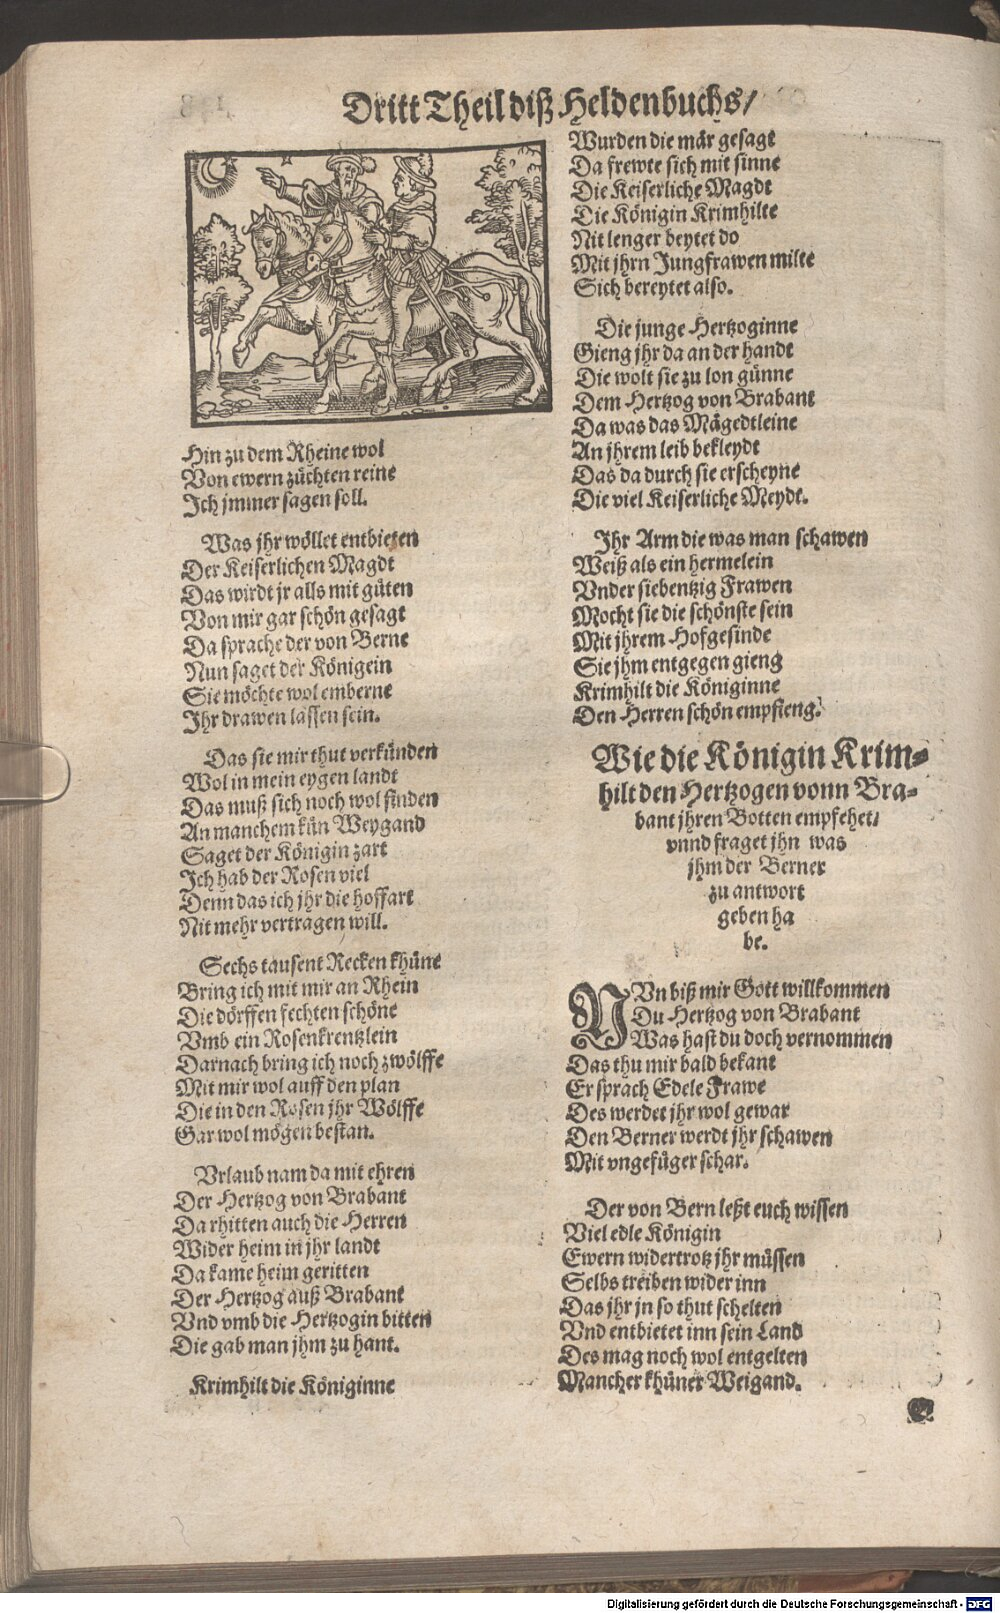 Dritt Theil diß Heldenbuchs/
Hin zu dem Rheine wol
Von ewern züchten reine
Ich jmmer sagen soll.
Was jhr wöllet entbieten
Der Keiserlichen Magdt
Das wirdt jr alls mit güten
Von mir gar schön gesagt
Da sprache der von Berne
Nun saget der Königein
Sie möchte wol emberne
Ihr drawen lassen sein.
Das sie mir thut verkünden
Wol in mein eygen landt
Das muß sich noch wol finden
An manchem kün Weygand
Saget der Königin zart
Ich hab der Rosen viel
Denn das ich jhr die hoffart
Nit mehr vertragen will.
Sechs tausent Recken khüne
Bring ich mit mir an Rhein
Die dörffen fechten schöne
Vmb ein Rosenkrentzlein
Darnach bring ich noch zwölffe
Mit mir wol auff den plan
Die in den Rosen jhr Wölffe
Gar wol mögen bestan.
Vrlaub nam da mit ehren
Der Hertzog von Brabant
Da rhitten auch die Herren
Wider heim in jhr landt
Da kame heim geritten
Der Hertzog auß Brabant
Vnd vmb die Hertzogin bitten
Die gab man jhm zu hant.
Krimhilt die Königinne
Wurden die mär gesagt
Da frewte sich mit sinne
Die Keiserliche Magdt
Die Königin Krimhilte
Nit lenger beytet do
Mit jhrn Jungfrawen milte
Sich bereytet also.
Die junge Hertzoginne
Gieng jhr da an der handt
Die wolt sie zu lon günne
Dem Hertzog von Brabant
Da was das Mägedtleine
An jhrem leib bekleydt
Das da durch sie erscheyne
Die viel Keiserliche Meydt.
Ihr Arm die was man schawen
Weiß als ein hermelein
Vnder siebentzig Frawen
Mocht sie die schönste sein
Mit jhrem Hofgesinde
Sie jhm entgegen gieng
Krimhilt die Königinne
Den Herren schön empfieng.
Wie die Königin Krim-
hilt den Hertzogen vonn Bra-
bant jhren Botten empfehet/
vnnd fraget jhn was
jhm der Berner
zu antwort
geben ha
be.
NVn biß mir Gott willkommen
Du Hertzog von Brabant
Was hast du doch vernommen
Das thu mir bald bekant
Er sprach Edele Frawe
Des werdet jhr wol gewar
Den Berner werdt jhr schawen
Mit vngefüger schar.
Der von Bern leßt euch wissen
Viel edle Königin
Ewern widertrotz jhr müssen
Selbs treiben wider inn
Das jhr jn so thut schelten
Vnd entbietet inn sein Land
Des mag noch wol entgelten
Mancher khüner Weigand.
Digitalisierung gefördert durch die Deutsche Forschungsgemeinschaft - DFG